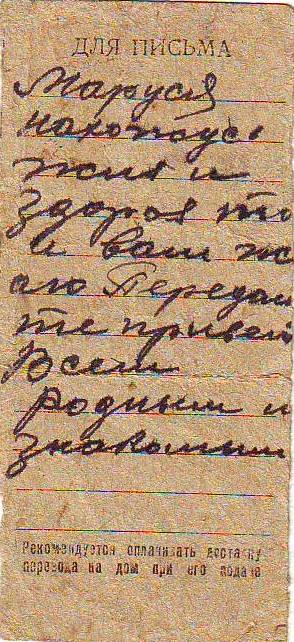 ДЛЯ ПИСЬМА
Маруся
нахожусь
жив и
здоров то
и вам же
лаю Передай
те привет
Всем
родным и
знакомым
Рекомендуется оплачивать доставку
перевода на дом при его подаче